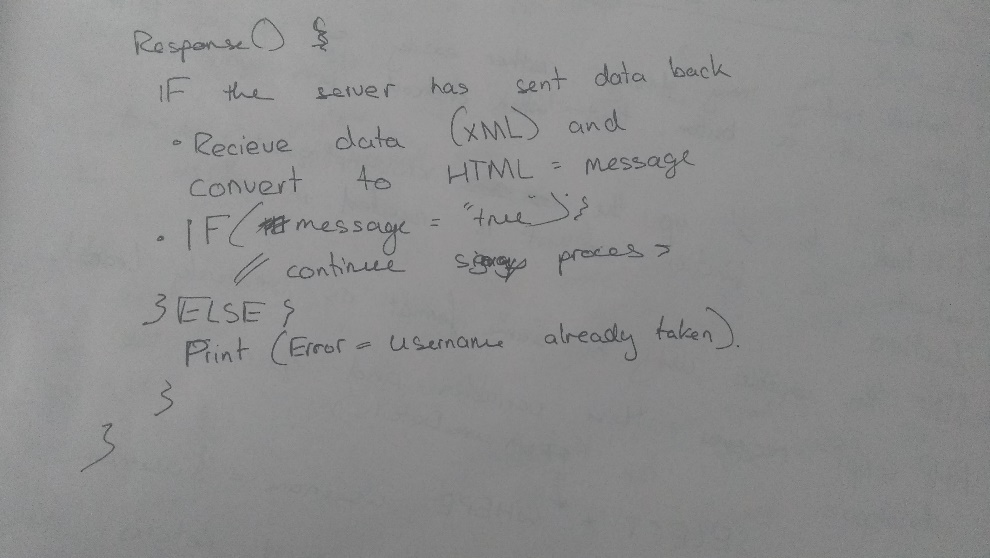 Response() {
IF the server has sent data back
• Recieve data (XML) and
convert to HTML = message
• IF( message = "true"){
// continue process
} ELSE {
Print (Error = username already taken).
}
}